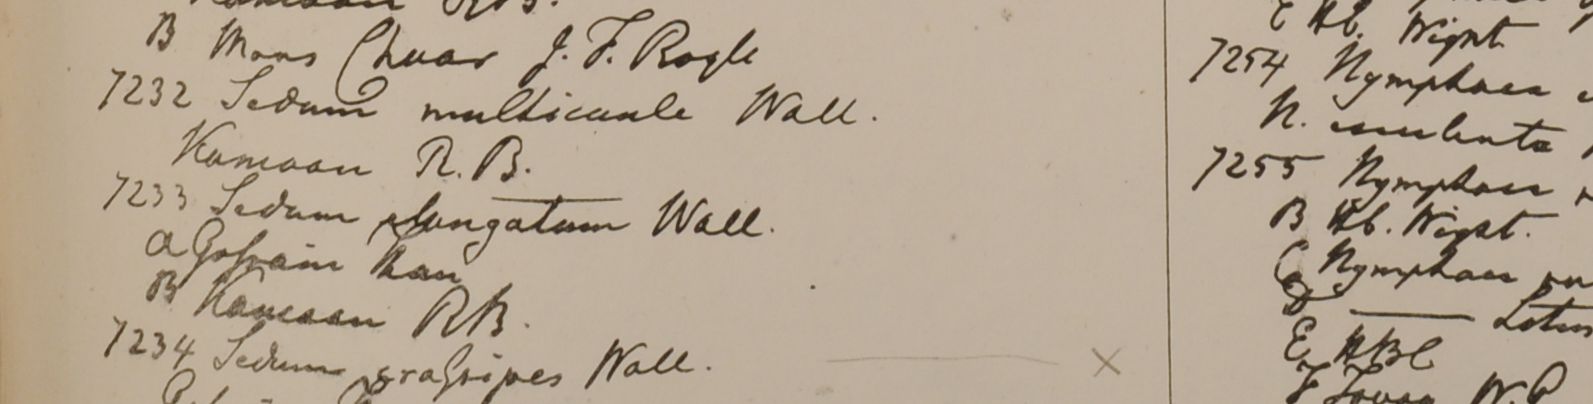 Kamaon R.B.
B Mons Chuar J. F. Royle
7232 Sedum multicaule Wall.
Kamaon R. B.
7233 Sedum elongatum Wall.
a Gossain than
B Kamaon RB.
7234 Sedum crassipes Wall.
E Hb. Wight.
7254 Nymphaea
N. esculenta
7255 Nymphaea
B Hb. Wight.
C Nymphaea
D ——— Lotus
E HBC
F Tavoy W.G